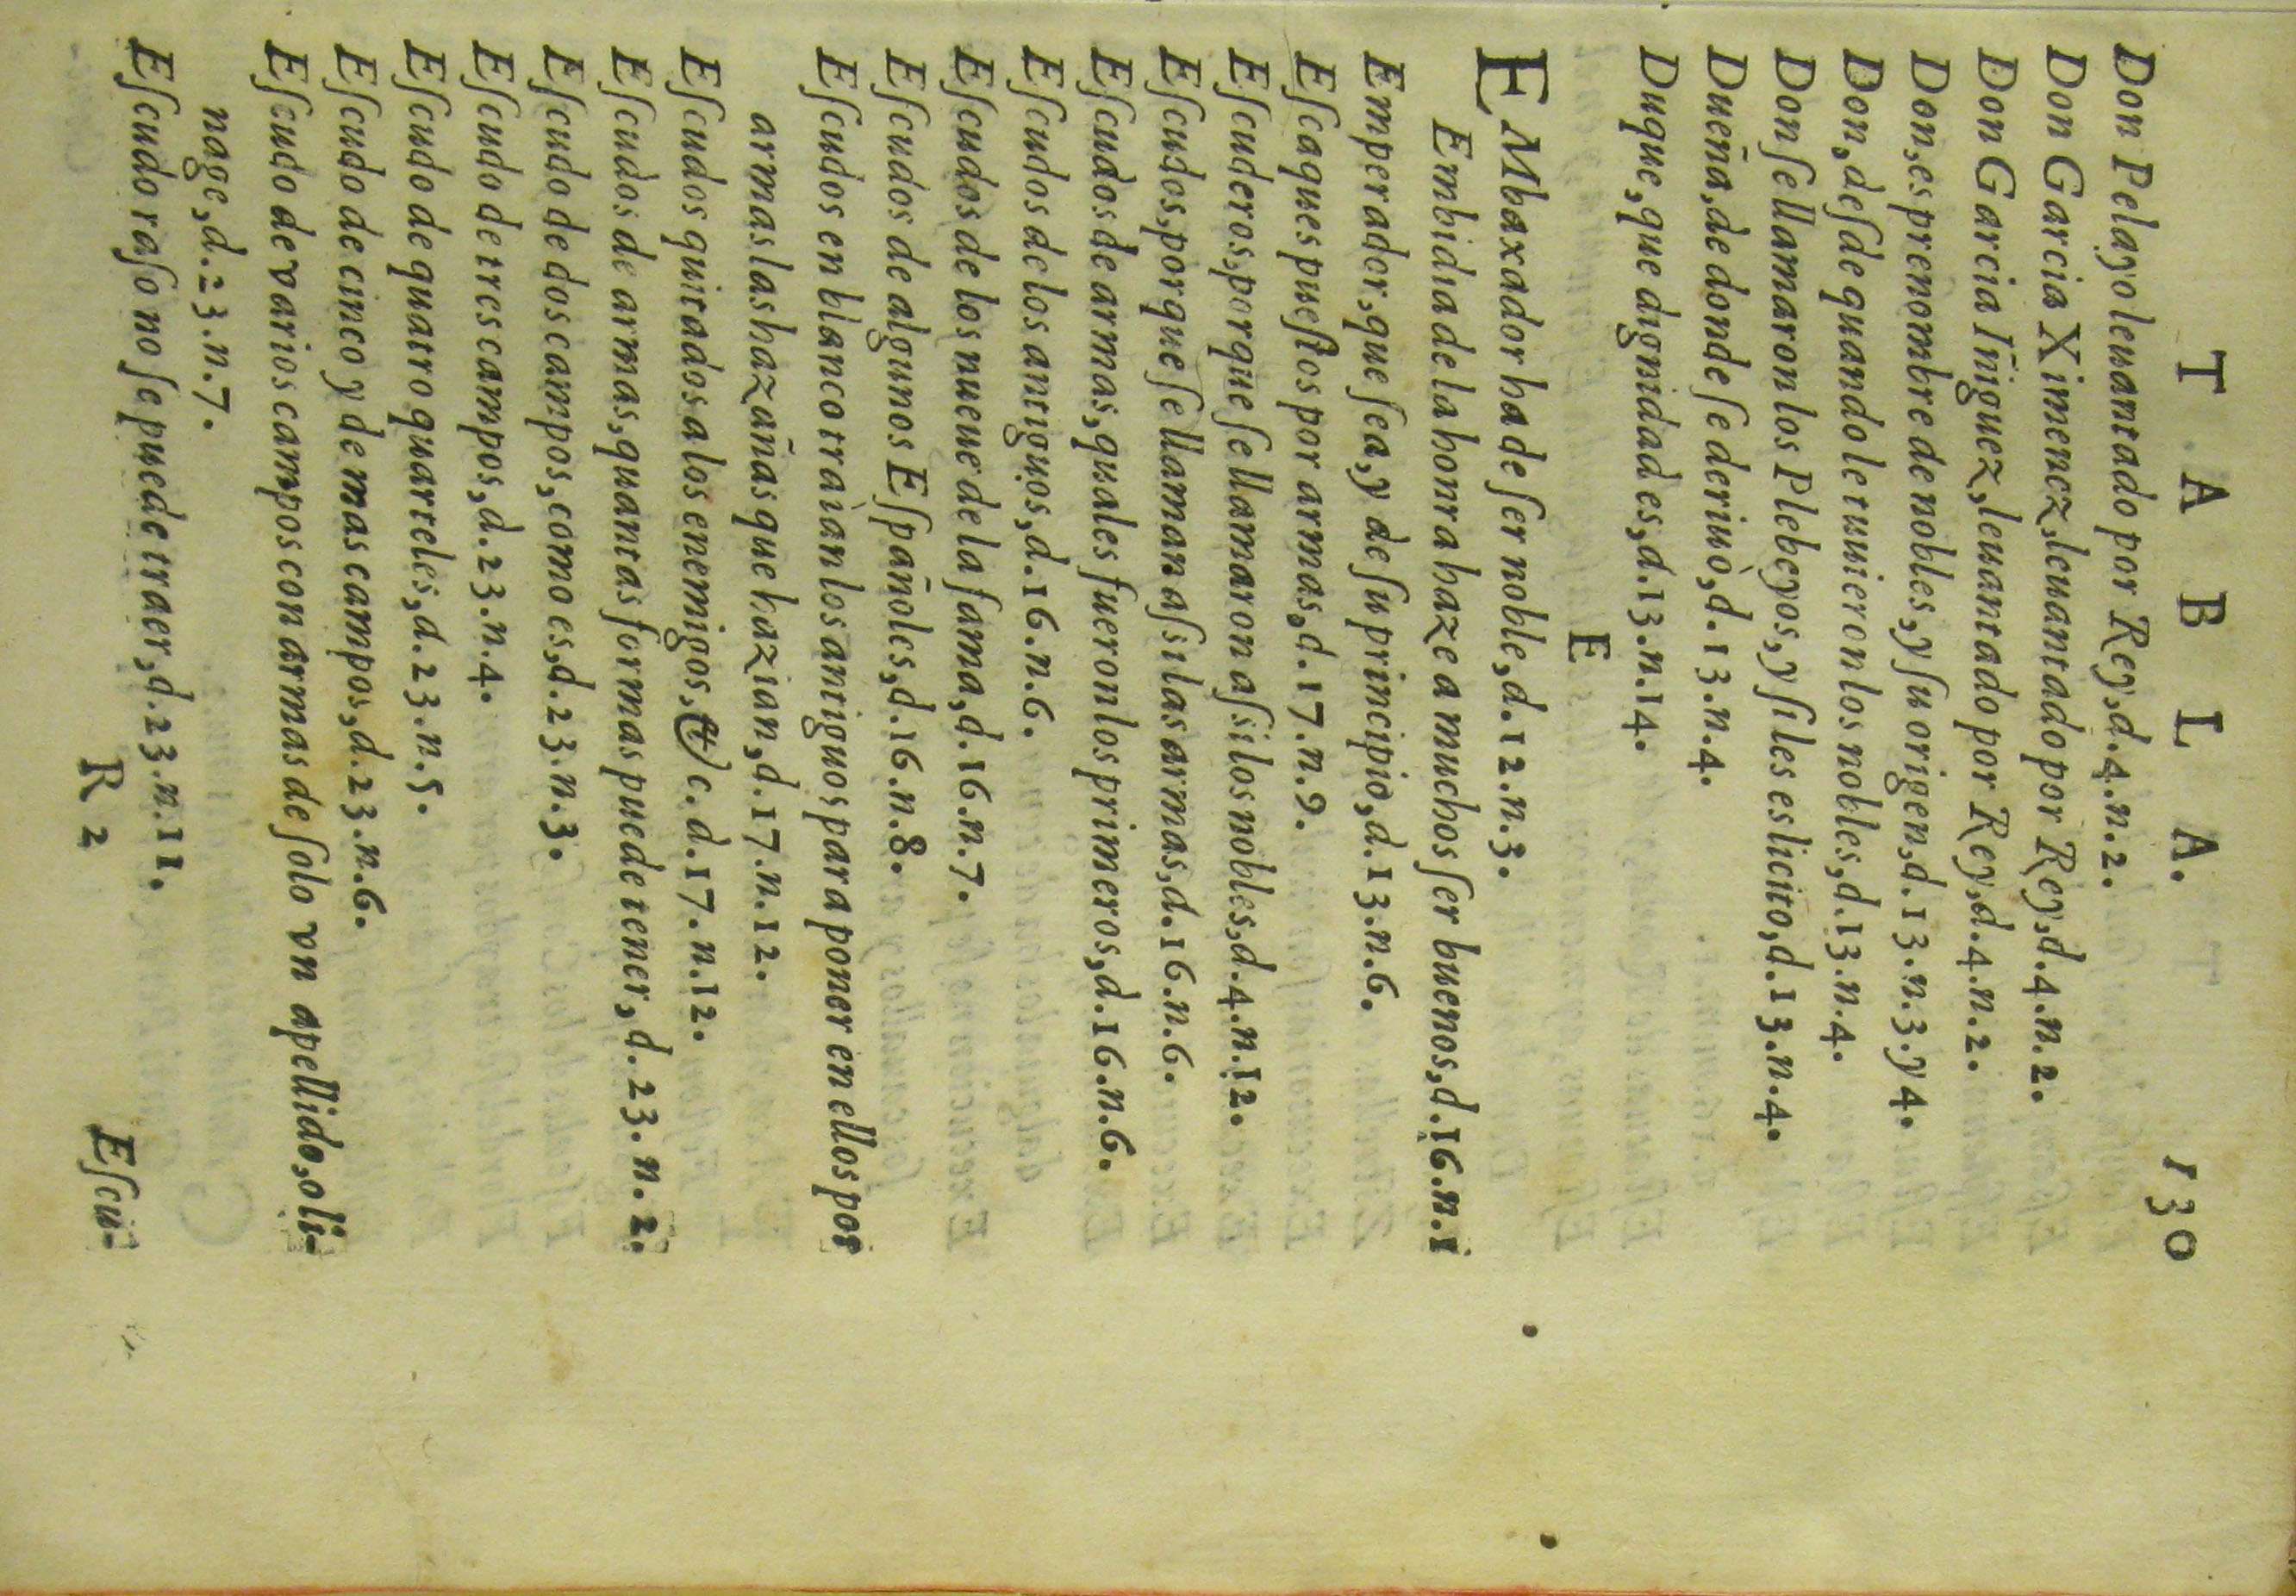 T A B L A. 130
Don Pelayo leuantado por Rey, d.4.n.2.
Don Garcia Ximenez, leuantado por Rey, d.4.n.2.
Don Garcia Iñiguez, leuantado por Rey, d.4.n.2.
Don, es prenombre de nobles, y ſu origen, d.13.n.3.y 4.
Don, deſde quando le tuuieron los nobles, d.13.n.4.
Don ſe llamaron los Plebeyos, y ſi les es licito, d.13.n.4.
Dueña, de donde ſe deriuò, d.13.n.4.
Duque, que dignidad es, d.13.n.14.
E
EMbaxador ha de ſer noble, d.12.n.3.
Embidia de la honra haze a muchos ſer buenos, d.16.n.1
Emperador, que ſea, y de ſu principio, d.13.n.6.
Eſcaques pueſtos por armas, d.17.n.9.
Eſcuderos, porque ſe llamaron aſsi los nobles, d.4.n.12.
Eſcudos, porque ſe llaman aſsi las armas, d.16.n.6.
Eſcudos de armas, quales fueron los primeros, d.16.n.6.
Eſcudos de los antiguos, d.16.n.6.
Eſcudos de los nueue de la fama, d.16.n.7.
Eſcudos de algunos Eſpañoles, d.16.n.8.
Eſcudos en blanco traìan los antiguos para poner en ellos por
armas las hazañas que hazian, d.17.n.12.
Eſcudos quitados a los enemigos, &c. d.17.n.12.
Eſcudos de armas, quantas formas puede tener, d.23.n.2.
Eſcudo de dos campos, como es, d.23.n.3.
Eſcudo de tres campos, d.23.n.4.
Eſcudo de quatro quarteles, d.23.n.5.
Eſcudo de cinco y de mas campos, d.23.n.6.
Eſcudo de varios campos con armas de ſolo vn apellido, o li-
nage, d.23.n.7.
Eſcudo raſo no ſe puede traer, d.23.n.11.
R 2 Eſcu-